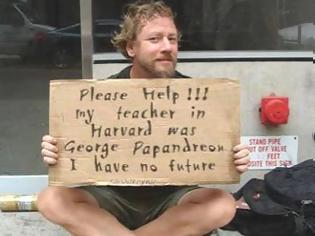 Please Help !!!
my teacher in
Harvard was
George Papandreou
I have no future
STAND PIPE
OUT VALVE
FEET
OSITE THIS SIG